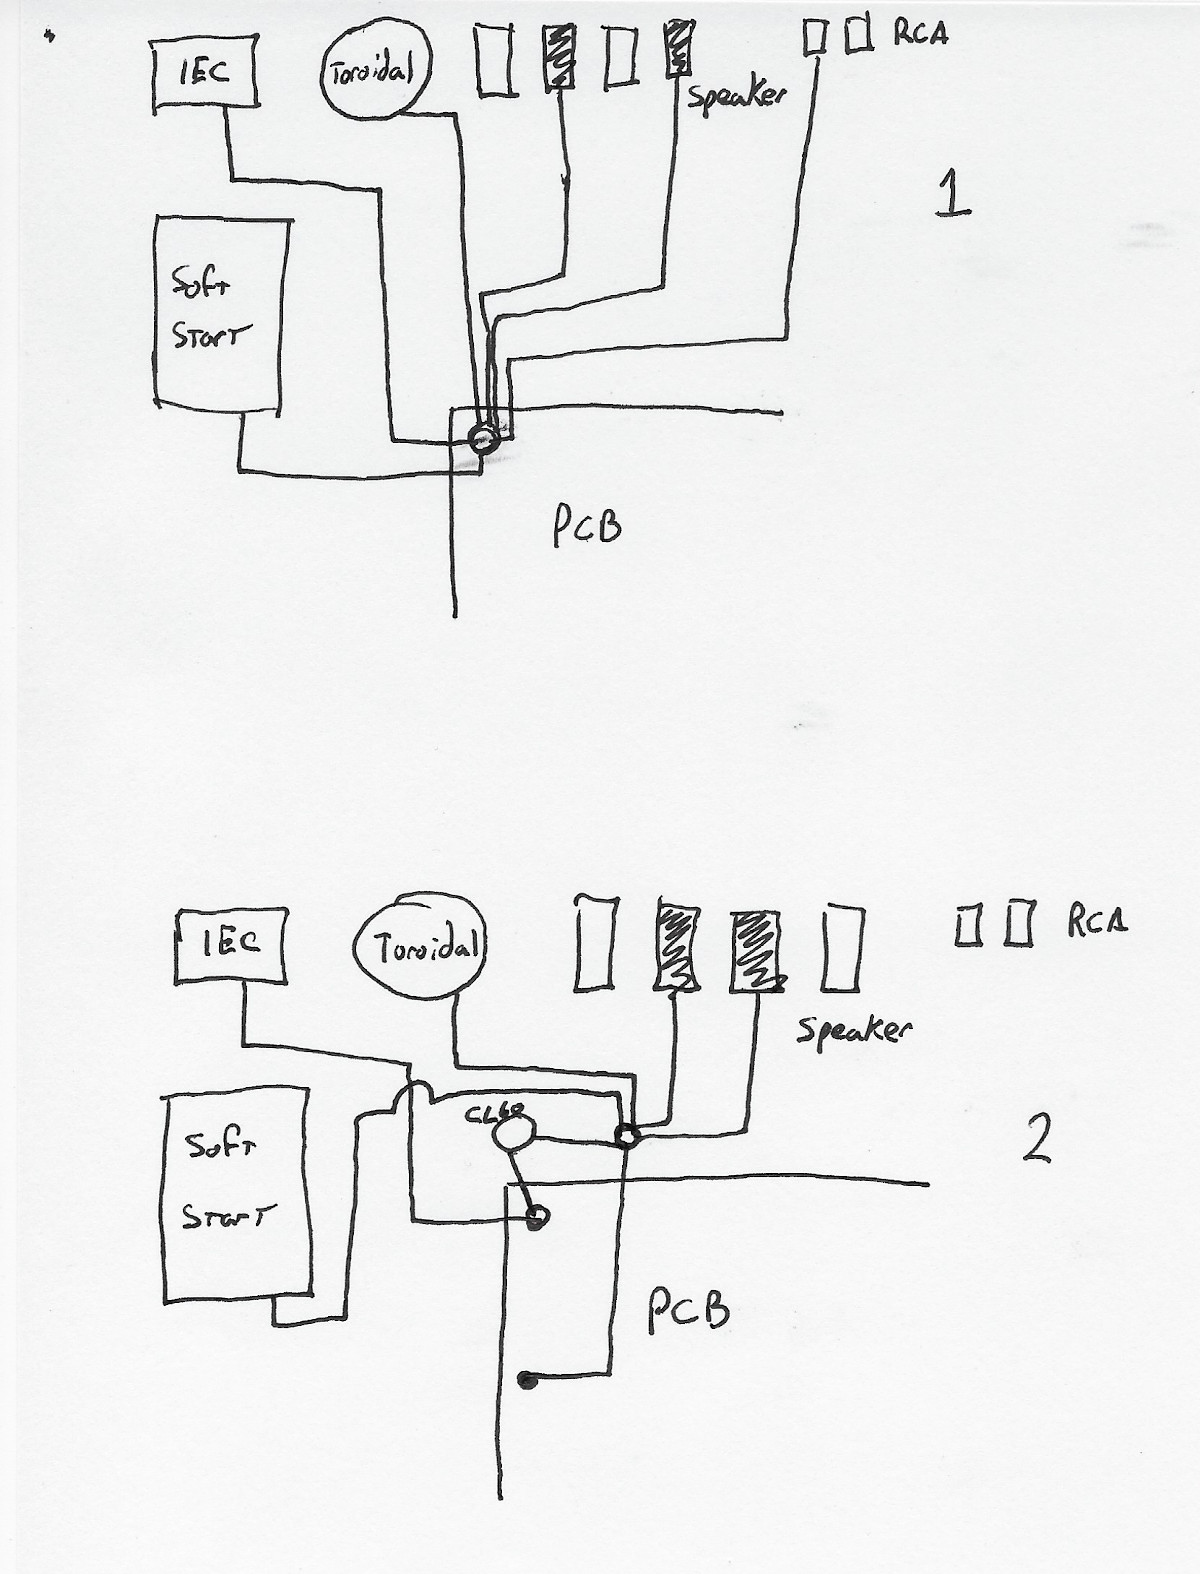 IEC
Toroidal
RCA
Speaker
1
Soft
Start
PCB
IEC
Toroidal
RCA
Speaker
CL60
2
Soft
Start
PCB